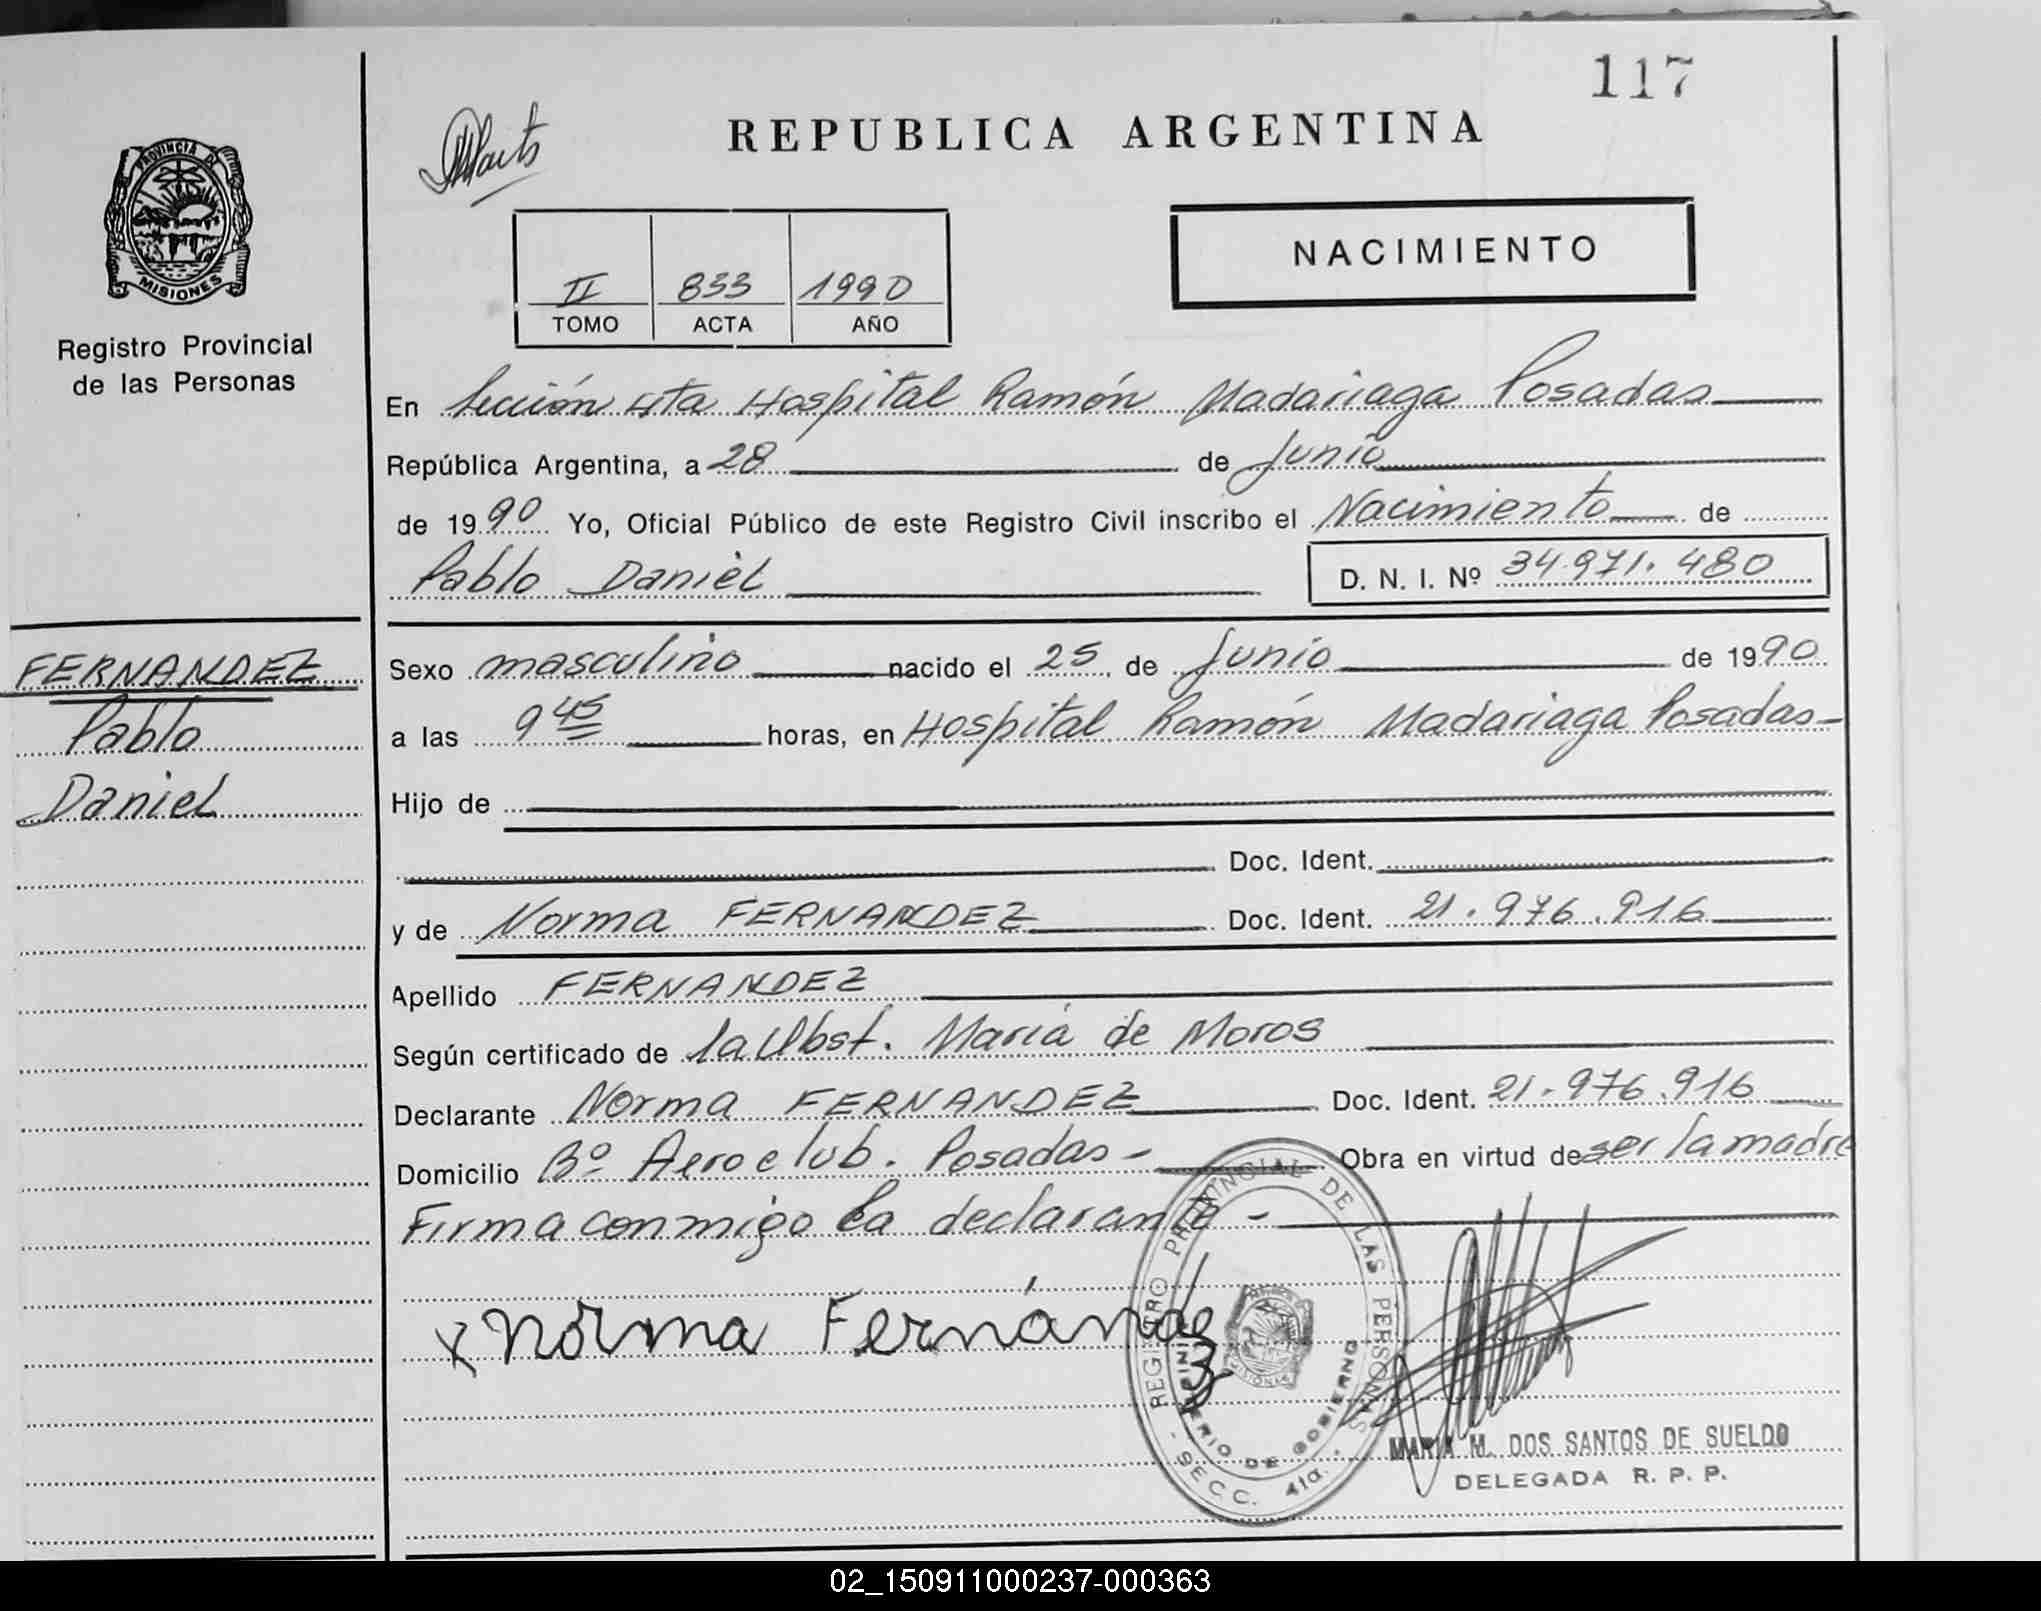 117
REPUBLICA ARGENTINA
PROVINCIA DE
MISIONES
Registro Provincial
de las Personas
NACIMIENTO
II 833 1990
TOMO ACTA AÑO
En Sección 4ta Hospital Ramón Madariaga Posadas
República Argentina, a 28 de Junio
de 1990 Yo, Oficial Público de este Registro Civil inscribo el Nacimiento de
Pablo Daniel D. N. I. Nº 34.971.480
FERNANDEZ
Pablo
Daniel
Sexo masculino nacido el 25 de Junio de 1990
a las 9 45 horas, en Hospital Ramón Madariaga Posadas-
Hijo de
Doc. Ident.
y de Norma FERNANDEZ Doc. Ident. 21.976.916
Apellido FERNANDEZ
Según certificado de la Obst. María de Moros
Declarante Norma FERNANDEZ Doc. Ident. 21.976.916
Domicilio Bº Aeroclub. Posadas- Obra en virtud de ser la madre
Firma conmigo la declarante-
x Norma Fernández
REGISTRO PROVINCIAL DE LAS PERSONAS
MINISTERIO DE GOBIERNO
MISIONES
- SECC. 4ta. -
MARIA M. DOS SANTOS DE SUELDO
DELEGADA R. P. P.
02_150911000237-000363